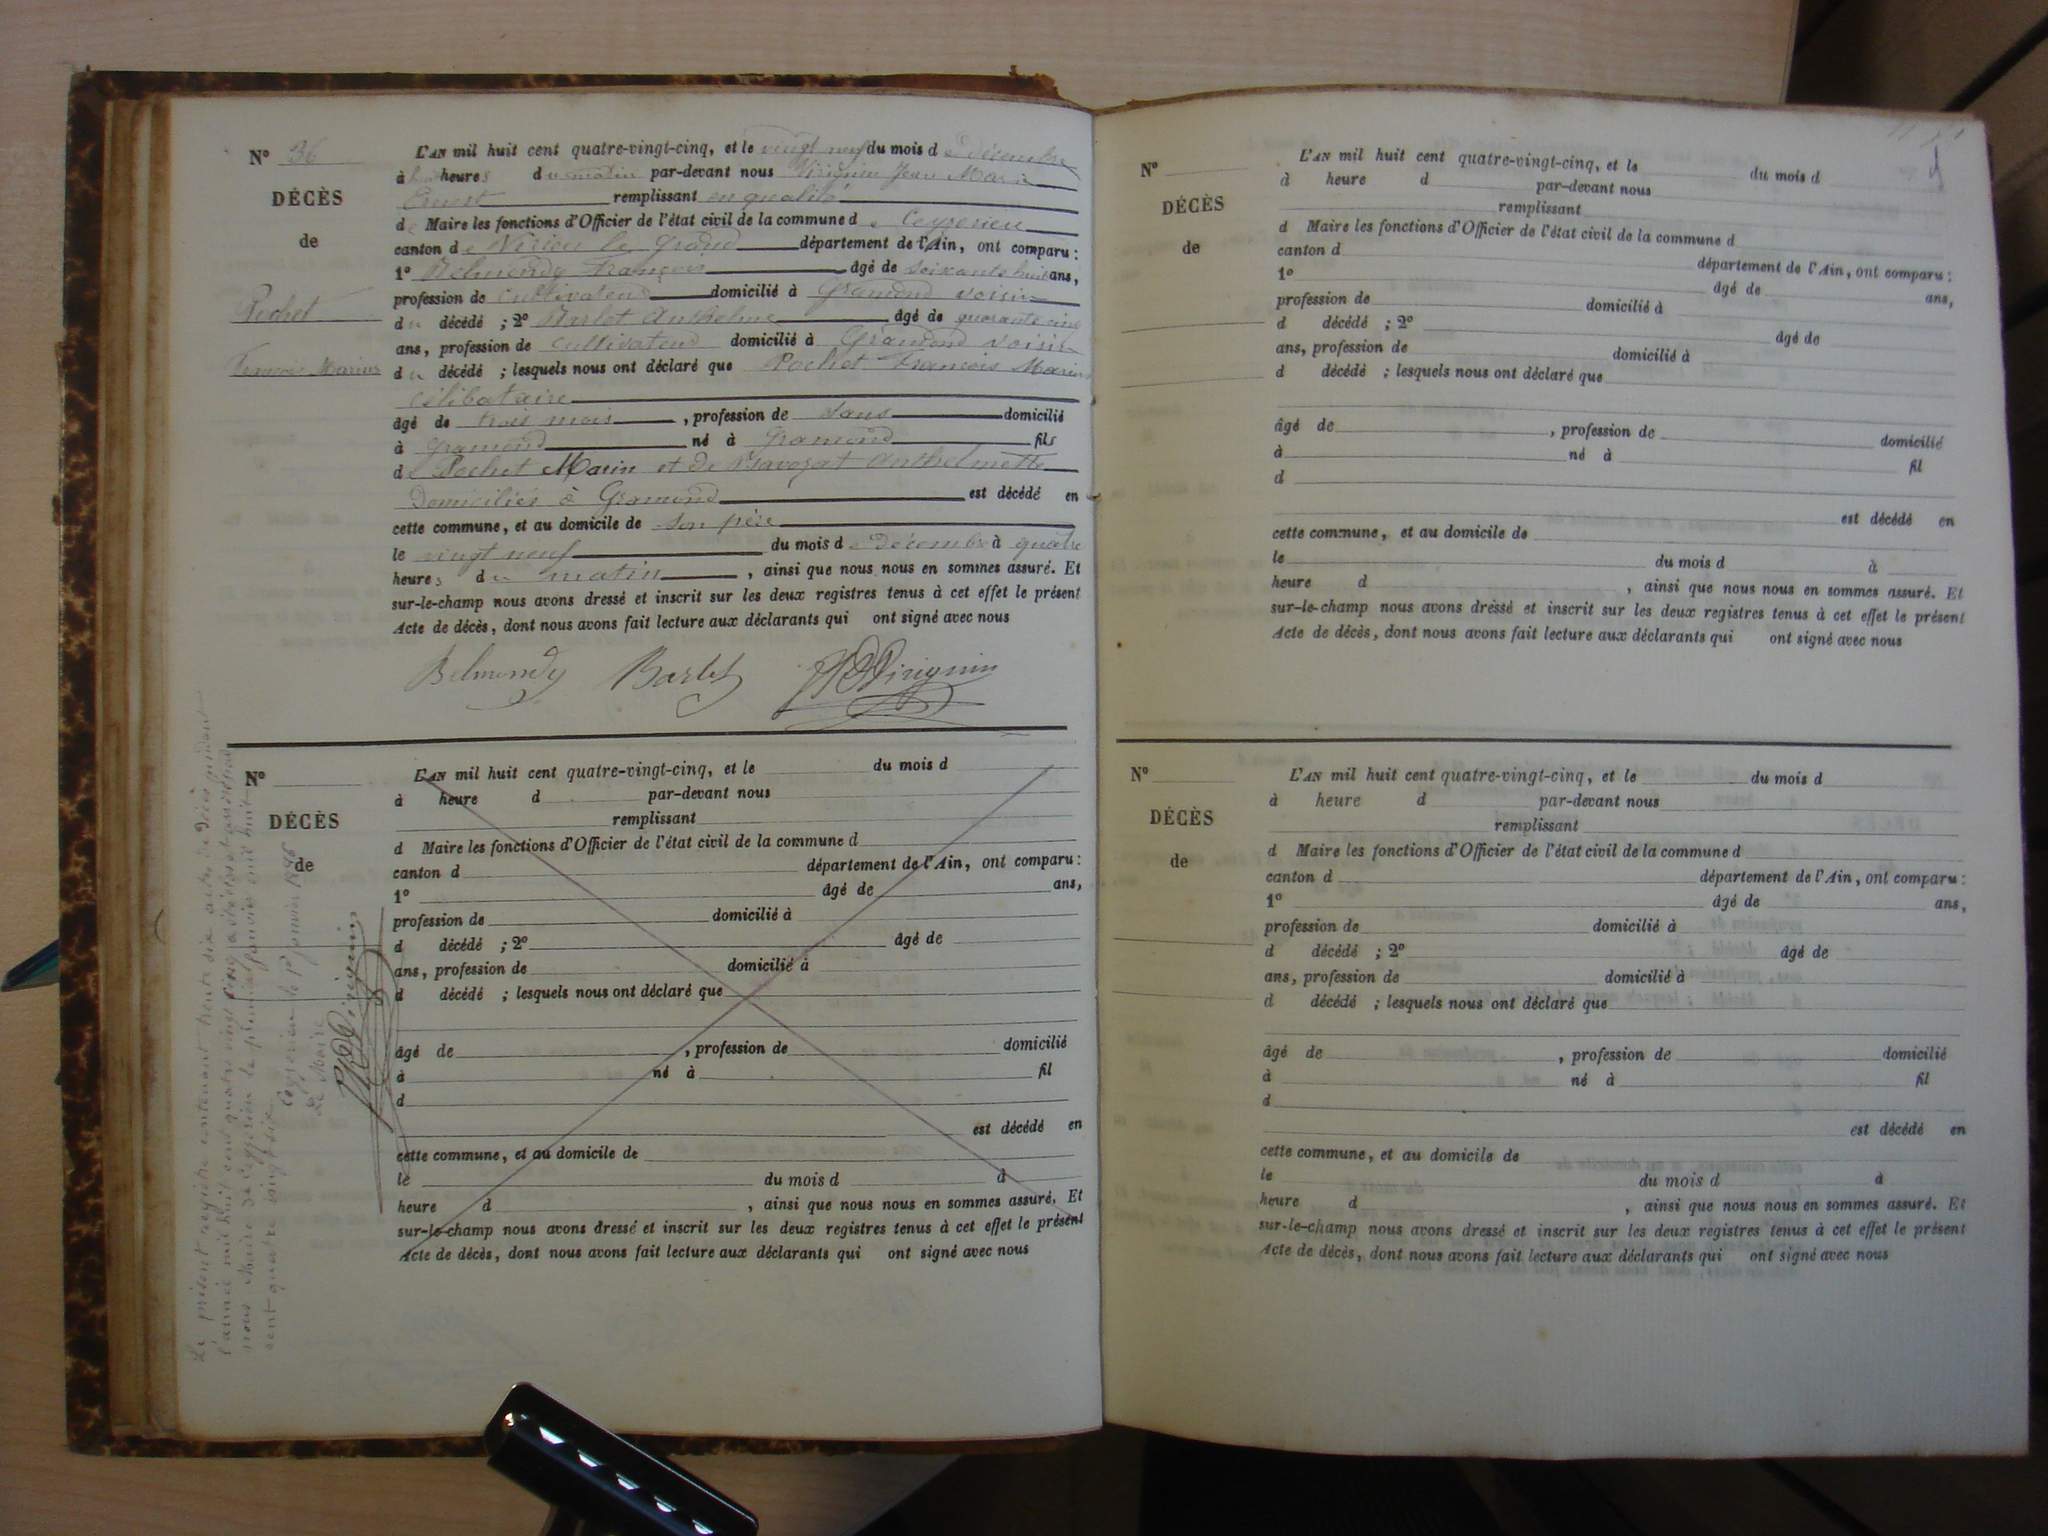 N° 36
DÉCÈS
de
Pochet
François Marius
L'AN mil huit cent quatre-vingt-cinq, et le vingt neuf du mois de décembre
à heures du matin par-devant nous Virignin Jean Marie
Ernest remplissant en qualité
de Maire les fonctions d'Officier de l'état civil de la commune de Ceyzerieu
canton de Virieu le Grand département de l'Ain, ont comparu :
1° Belmondy François âgé de soixante huit ans,
profession de cultivateur domicilié à Gramond voisin
du décédé ; 2° Barlet Anthelme âgé de quarante cinq
ans, profession de cultivateur domicilié à Gramond voisin
du décédé ; lesquels nous ont déclaré que Pochet François Marius
célibataire
âgé de trois mois, profession de sans domicilié
à Gramond né à Gramond fils
de Pochet Marin et de Anthelmette
Domiciliés à Gramond est décédé en
cette commune, et au domicile de son père
le vingt neuf du mois de Décembre à quatre
heures du matin, ainsi que nous nous en sommes assuré. Et
sur-le-champ nous avons dressé et inscrit sur les deux registres tenus à cet effet le présent
Acte de décès, dont nous avons fait lecture aux déclarants qui ont signé avec nous
Belmondy Barlet Virignin
N°
DÉCÈS
de
L'AN mil huit cent quatre-vingt-cinq, et le du mois d
à heure d par-devant nous
remplissant
d Maire les fonctions d'Officier de l'état civil de la commune d
canton d département de l'Ain, ont comparu :
1° âgé de ans,
profession de domicilié à
d décédé ; 2° âgé de
ans, profession de domicilié à
d décédé ; lesquels nous ont déclaré que
âgé de , profession de domicilié
à né à fil
d
est décédé en
cette commune, et au domicile de
le du mois d à
heure d , ainsi que nous nous en sommes assuré. Et
sur-le-champ nous avons dressé et inscrit sur les deux registres tenus à cet effet le présent
Acte de décès, dont nous avons fait lecture aux déclarants qui ont signé avec nous
Le présent registre contenant trente six actes de décès pendant
l'année mil huit cent quatre vingt cinq a été clos et arrêté par
nous Maire de Ceyzerieu le premier janvier mil huit
cent quatre vingt six
Ceyzerieu le 1er janvier 1886
Le Maire
Virignin
N°
DÉCÈS
de
L'AN mil huit cent quatre-vingt-cinq, et le du mois d
à heure d par-devant nous
remplissant
d Maire les fonctions d'Officier de l'état civil de la commune d
canton d département de l'Ain, ont comparu :
1° âgé de ans,
profession de domicilié à
d décédé ; 2° âgé de
ans, profession de domicilié à
d décédé ; lesquels nous ont déclaré que
âgé de , profession de domicilié
à né à fil
d
est décédé en
cette commune, et au domicile de
le du mois d à
heure d , ainsi que nous nous en sommes assuré. Et
sur-le-champ nous avons dressé et inscrit sur les deux registres tenus à cet effet le présent
Acte de décès, dont nous avons fait lecture aux déclarants qui ont signé avec nous
N°
DÉCÈS
de
L'AN mil huit cent quatre-vingt-cinq, et le du mois d
à heure d par-devant nous
remplissant
d Maire les fonctions d'Officier de l'état civil de la commune d
canton d département de l'Ain, ont comparu :
1° âgé de ans,
profession de domicilié à
d décédé ; 2° âgé de
ans, profession de domicilié à
d décédé ; lesquels nous ont déclaré que
âgé de , profession de domicilié
à né à fil
d
est décédé en
cette commune, et au domicile de
le du mois d à
heure d , ainsi que nous nous en sommes assuré. Et
sur-le-champ nous avons dressé et inscrit sur les deux registres tenus à cet effet le présent
Acte de décès, dont nous avons fait lecture aux déclarants qui ont signé avec nous